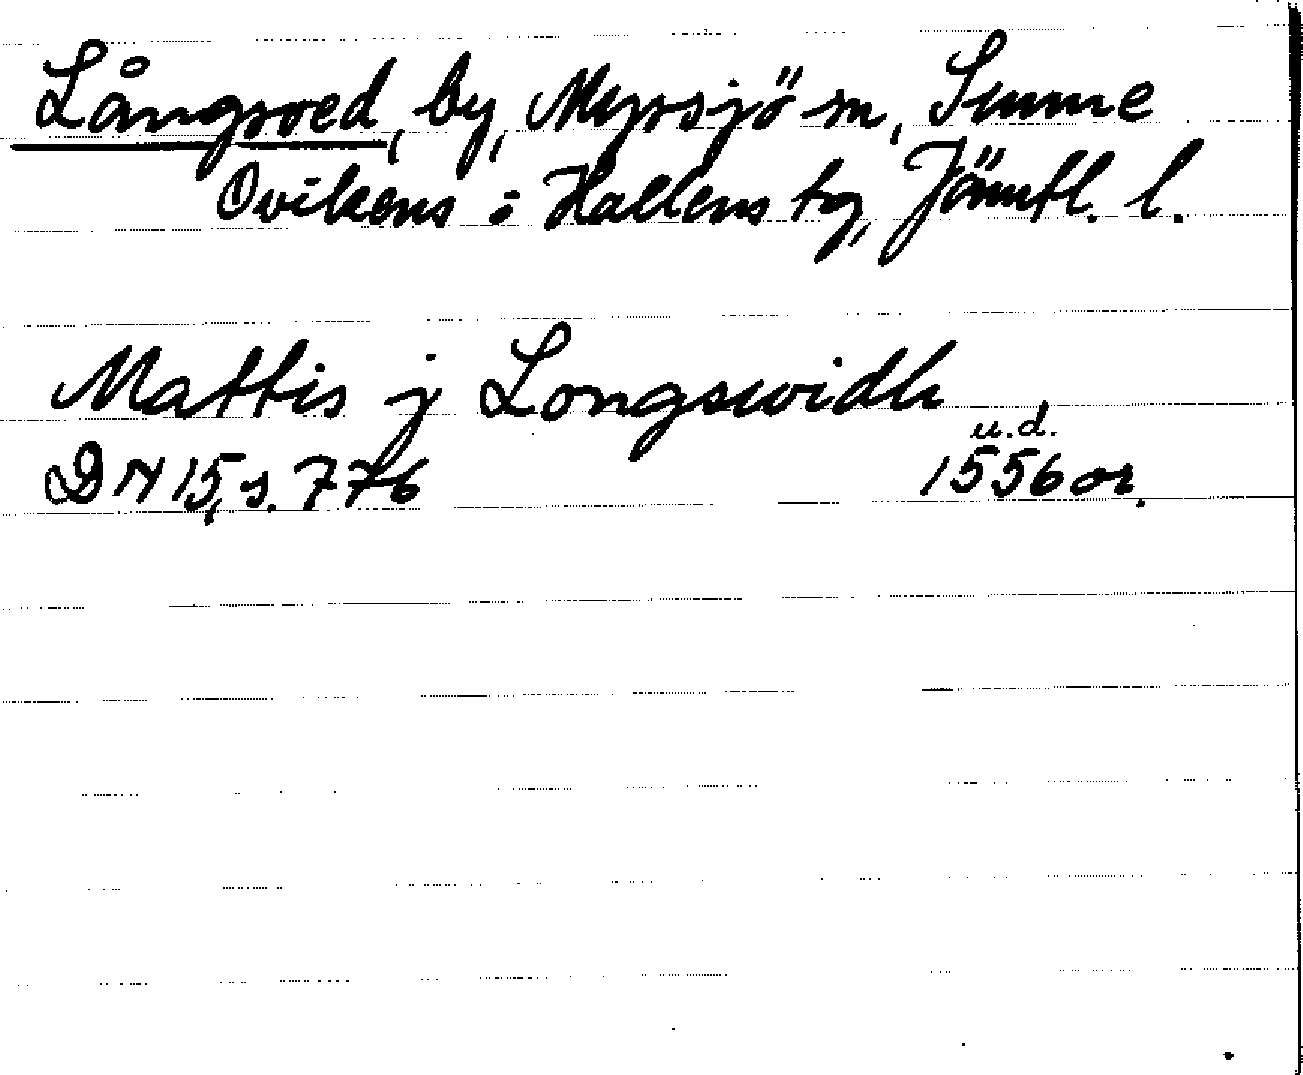 Långsved, by, Myssjö sn, Sunne
Ovikens o Hallens tg, Jämtl. l.
Mattis j Longswidh
u.d.
DN 15, s. 776 1556 or.